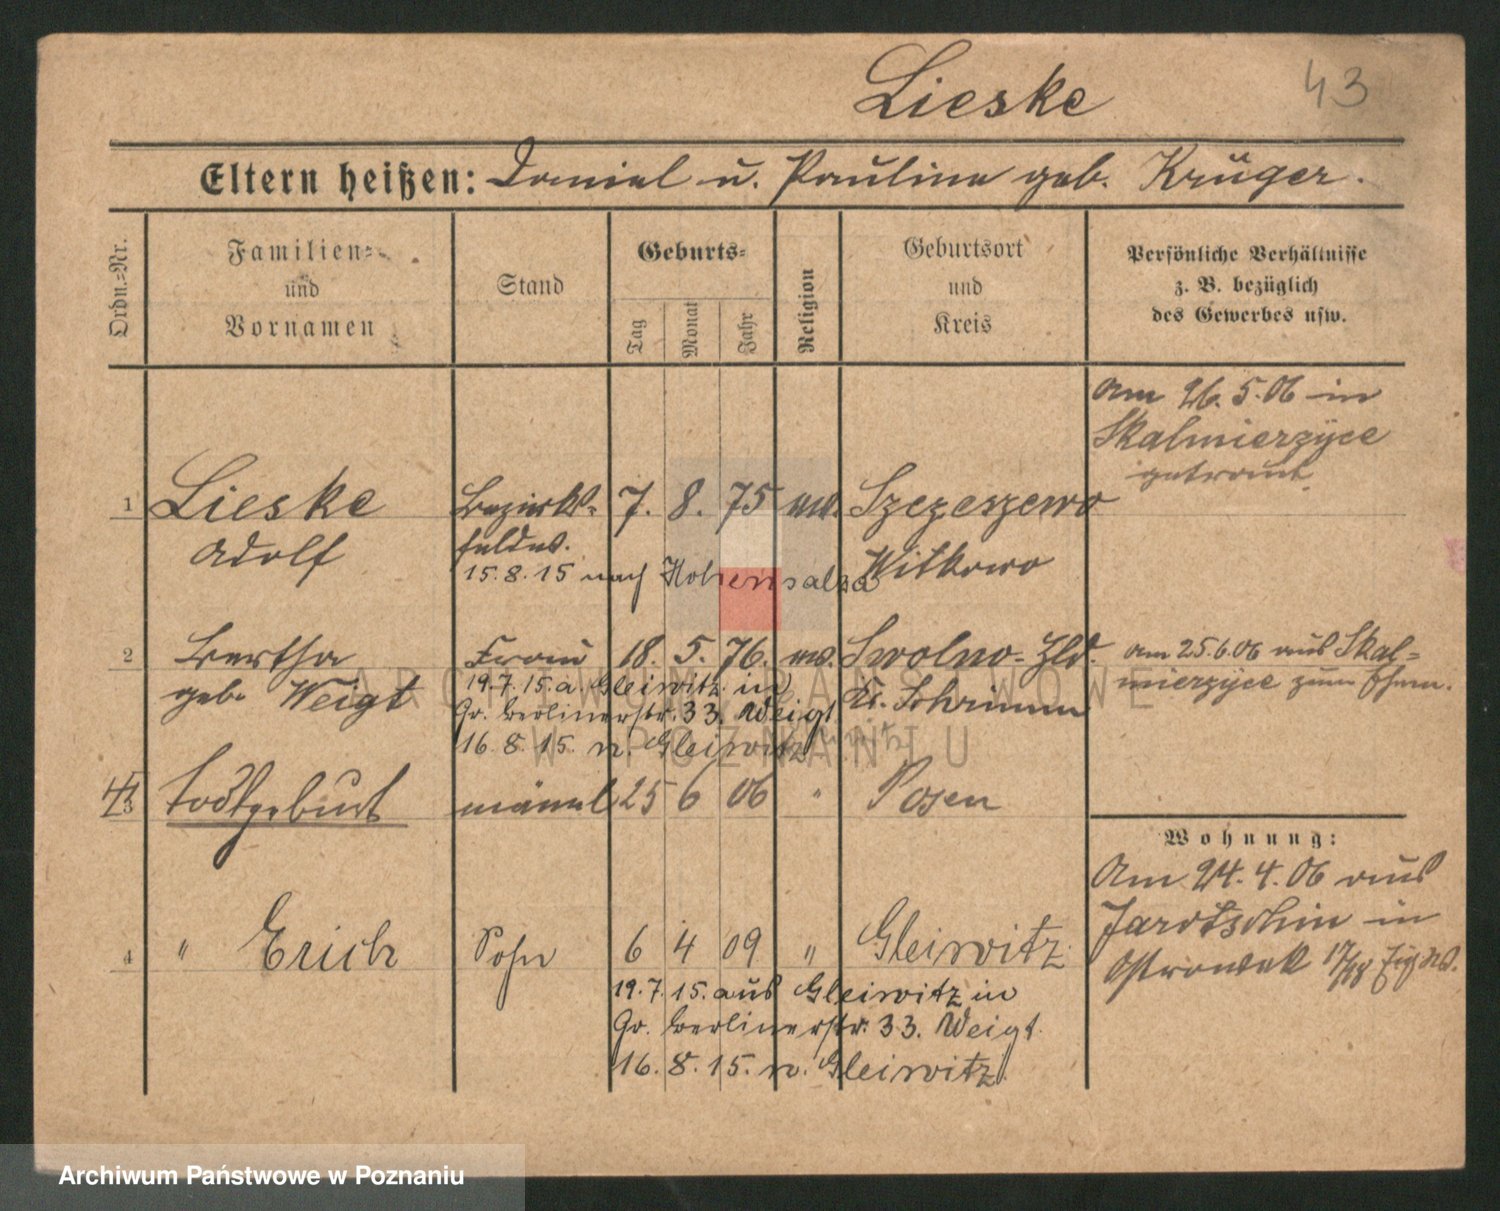 Lieske
43
Eltern heißen: Daniel u. Pauline geb. Krüger.
Ordn.-Nr.
Familien- und Vornamen
Stand
Geburts-
Tag
Monat
Jahr
Religion
Geburtsort und Kreis
Persönliche Verhältnisse
z. B. bezüglich
des Gewerbes usw.
Am 26.5.06 in
Skalmierzyce
getraut
1 Lieske Bezirks- 7. 8. 75 ew. Szczeszewo
Adolf feldw. Witkowo
15.8.15 nach Hohensalza
2 Bertha Frau 18. 5. 76. ew. Swolno-Hld.
geb. Weigt Kr. Schrimm
19.7.15. a. Gleiwitz in
Gr. Berlinerstr. 33. Weigt
16.8.15. n. Gleiwitz
am 25.6.06 aus Skal=
mierzyce zum Ehem.
3 Todtgeburt männl 25 6 06 " Posen
Wohnung:
Am 24.4.06 aus
Jarotschin in
4 " Erich Sohn 6 4 09 " Gleiwitz
19.7.15. aus Gleiwitz in
Gr. Berlinerstr. 33. Weigt
16.8.15. n. Gleiwitz
ARCHIWUM PAŃSTWOWE
W POZNANIU
Archiwum Państwowe w Poznaniu